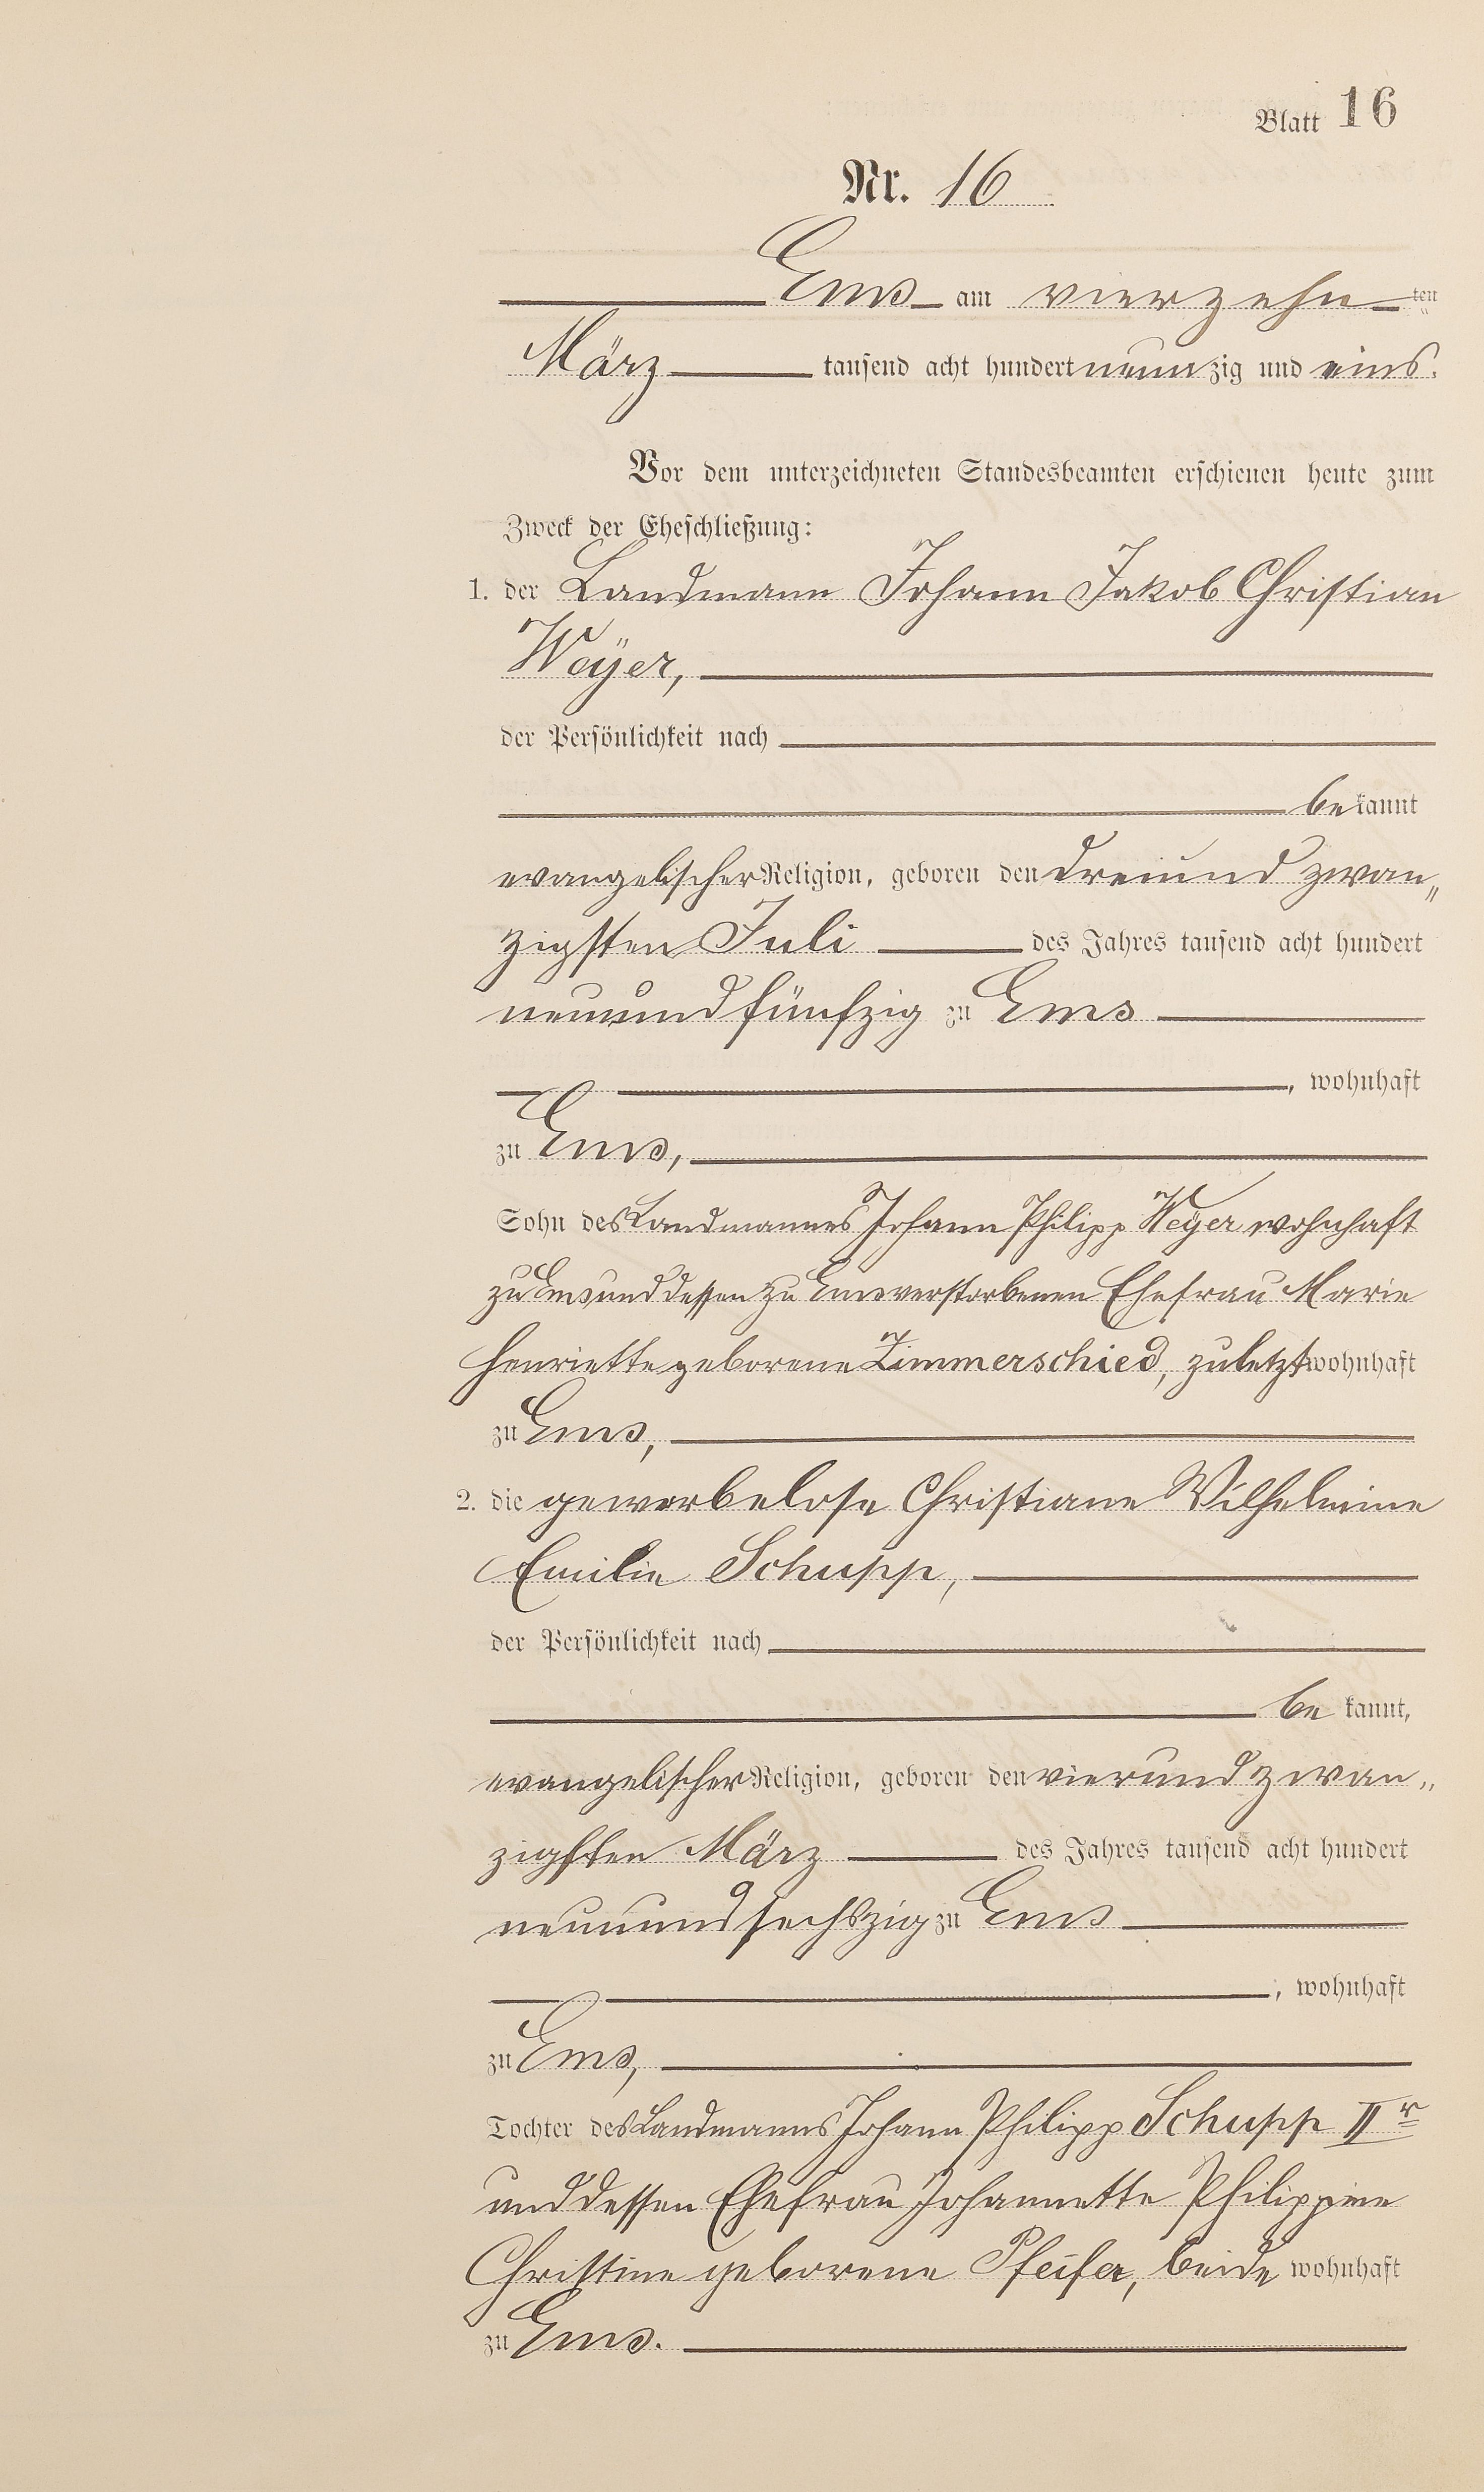 Blatt 16
Nr. 16
Ems am vierzehn ten
März tausend acht hundert neun zig und eins.
Vor dem unterzeichneten Standesbeamten erschienen heute zum
Zweck der Eheschließung:
1. der Landmann Johann Jakob Christian
Weÿer,
der Persönlichkeit nach
be kannt
evangelischer Religion, geboren den dreiund zwan„
zigsten Juli des Jahres tausend acht hundert
neunundfünfzig zu Ems
, wohnhaft
zu Ems,
Sohn des Landmannes Johann Philipp Weÿer wohnhaft
zu Ems und dessen zu Ems verstorbenen Ehefrau Marie
Henriette geborene Zimmerschied, zuletzt wohnhaft
zu Ems,
2. die gewerbelose Christiane Wilhelmine
Emilie Schupp,
der Persönlichkeit nach
be kannt,
evangelischer Religion, geboren den vierundzwan„
zigsten März des Jahres tausend acht hundert
neunundsechszig zu Ems
, wohnhaft
zu Ems,
Tochter des Landmanns Johann Philipp Schupp IIr
und dessen Ehefrau Johannette Philippine
Christine geborene Pfeifer, beide wohnhaft
zu Ems.